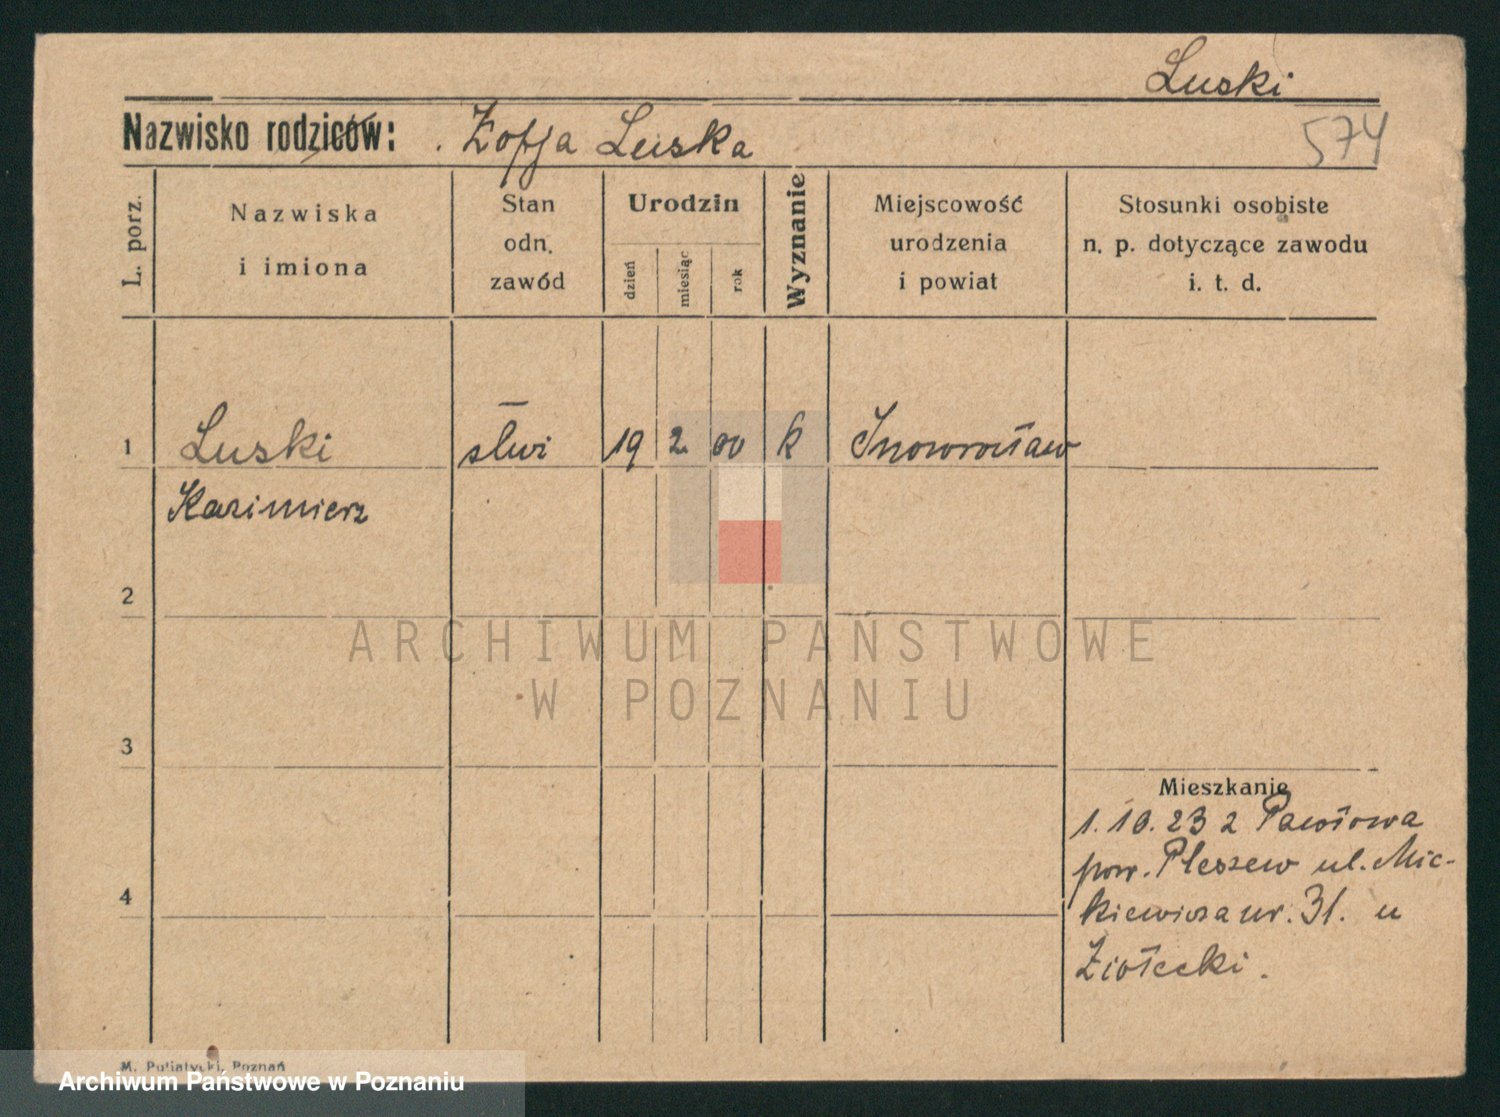 Luski
Nazwisko rodziców: Zofja Luska
574
L. porz.
Nazwiska
i imiona
Stan
odn.
zawód
Urodzin
dzień
miesiąc
rok
Wyznanie
Miejscowość
urodzenia
i powiat
Stosunki osobiste
n. p. dotyczące zawodu
i. t. d.
1 Luski 19 2 00 k Inowrocław
Kazimierz
2
ARCHIWUM PAŃSTWOWE
W POZNANIU
3
Mieszkanie
1.10.23 z Pawłowa
pow. Pleszew ul. Mic-
kiewicza nr. 31. u
Ziółecki.
4
M. Putiatycki, Poznań
Archiwum Państwowe w Poznaniu